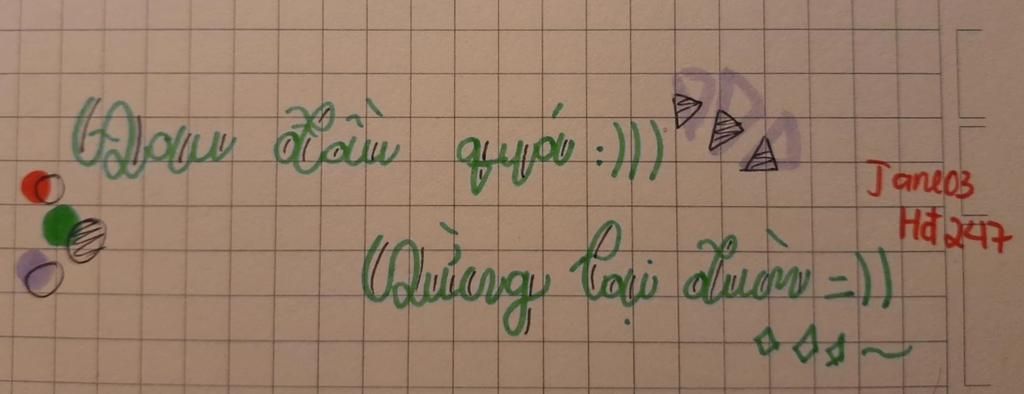 Đau đầu quá :)))
Dừng lại =))
Jane03
Hđ247